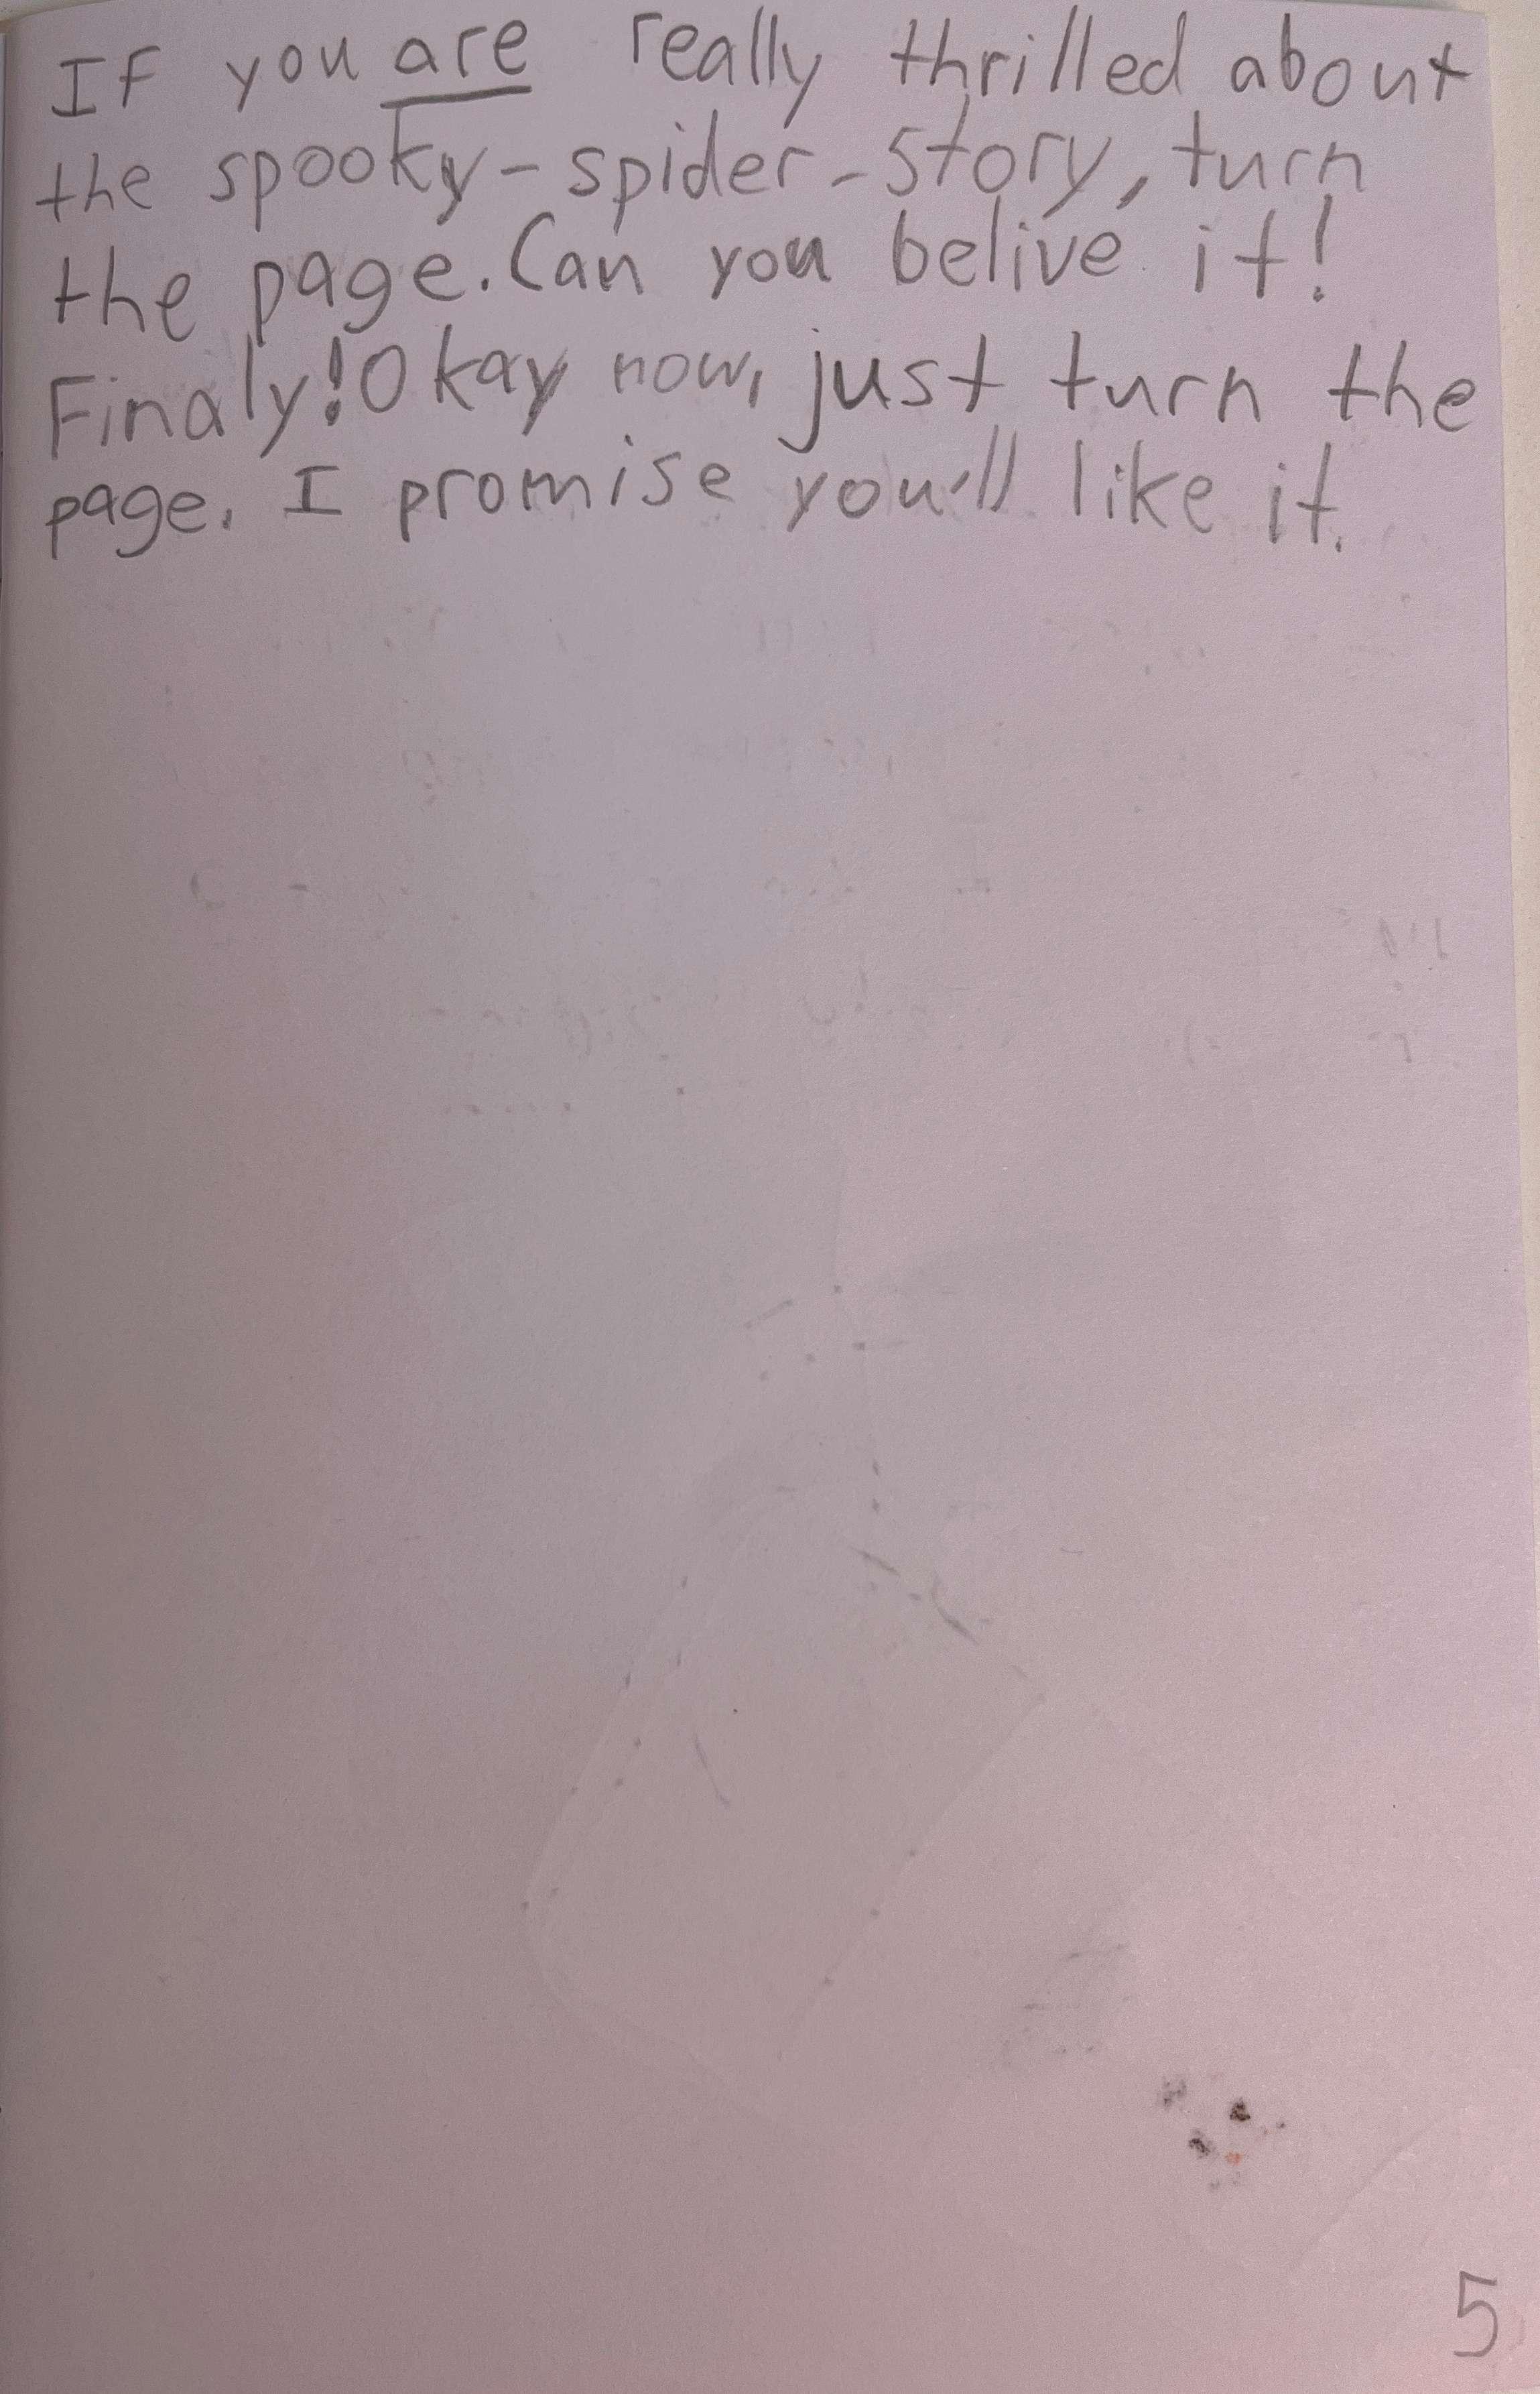 If you are really thrilled about
the spooky-spider-story, turn
the page. Can you belive it!
Finaly! Okay now, just turn the
page. I promise you'll like it.
5